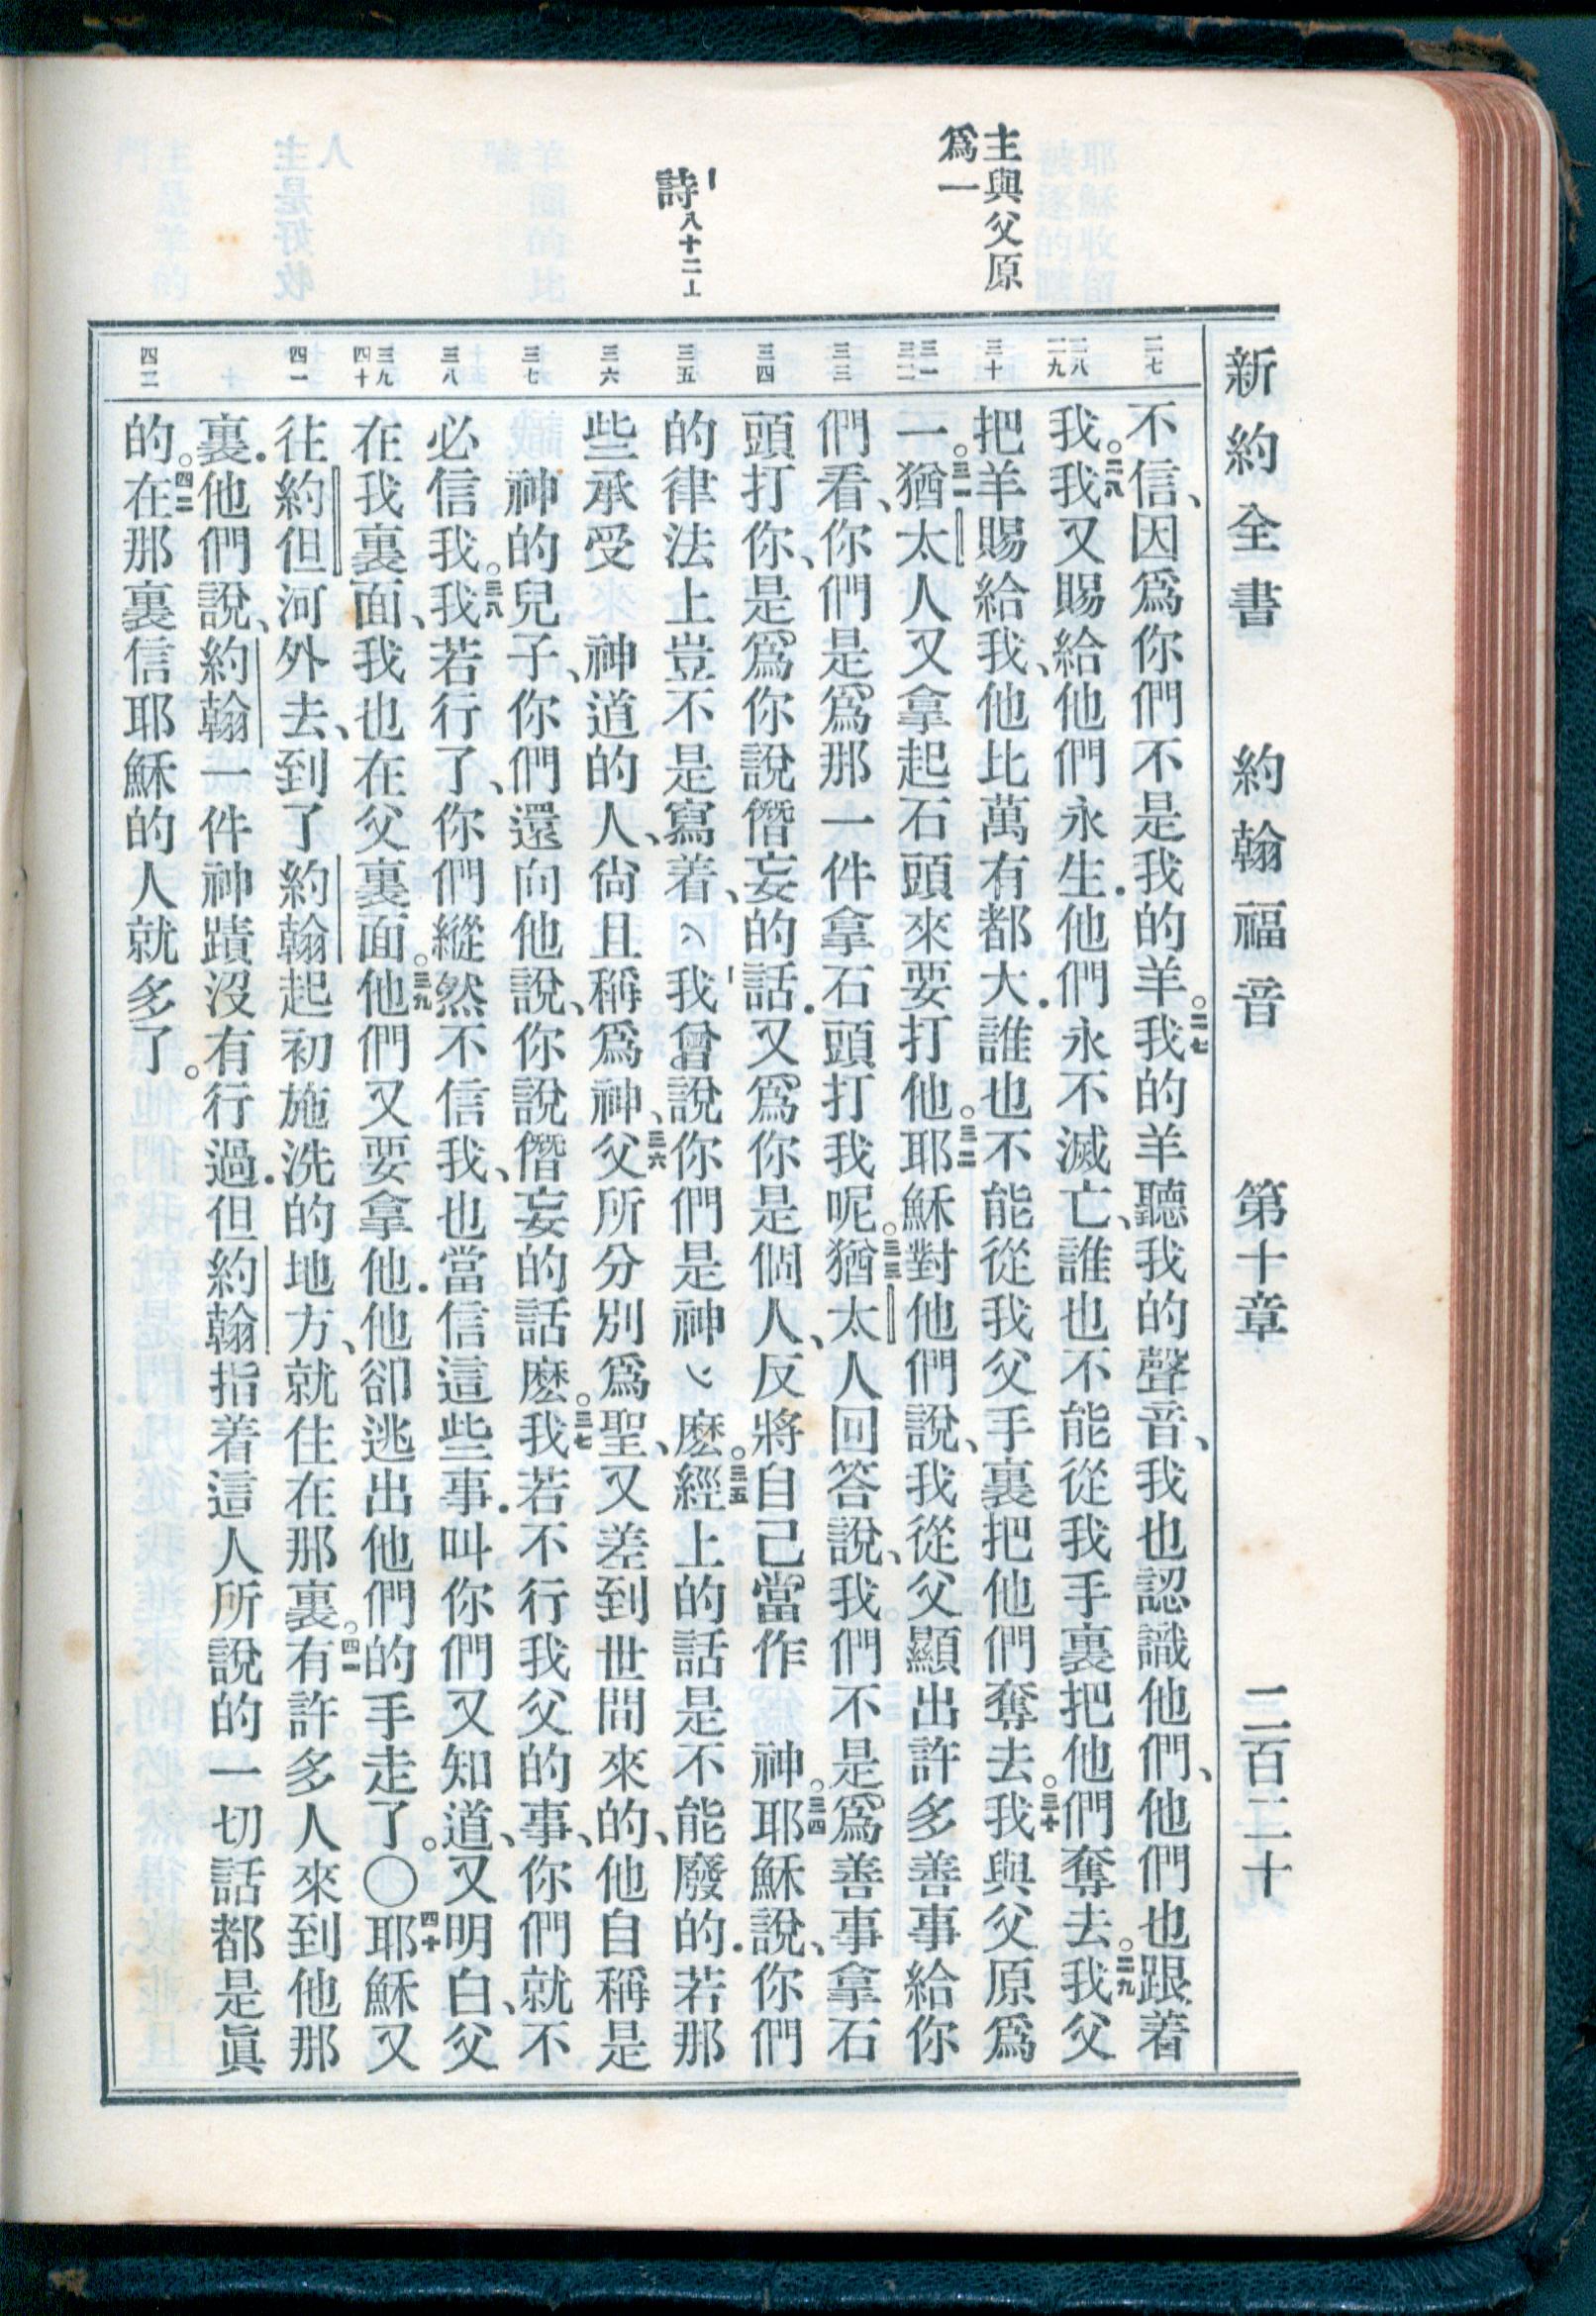 新約全書　約翰福音　第十章　二百二十
主與父原
爲一
詩八十二⊥
二七
二八
二九
三十
三一
三二
三三
三四
三五
三六
三七
三八
三九
四十
四一
四二
不信、因爲你們不是我的羊。二七我的羊聽我的聲音、我也認識他們、他們也跟着
我。二八我又賜給他們永生．他們永不滅亡、誰也不能從我手裏把他們奪去。二九我父
把羊賜給我、他比萬有都大．誰也不能從我父手裏把他們奪去。三十我與父原爲
一。三一猶太人又拿起石頭來要打他。三二耶穌對他們說、我從父顯出許多善事給你
們看、你們是爲那一件拿石頭打我呢。三三猶太人回答說、我們不是爲善事拿石
頭打你、是爲你說僭妄的話．又爲你是個人、反將自己當作　神。三四耶穌說、你們
的律法上豈不是寫着、我曾說你們是神麽。三五經上的話是不能廢的．若那
些承受　神道的人、尙且稱爲神、三六父所分別爲聖、又差到世間來的、他自稱是
　神的兒子、你們還向他說、你說僭妄的話麽。三七我若不行我父的事、你們就不
必信我。三八我若行了、你們縱然不信我、也當信這些事．叫你們又知道、又明白、父
在我裏面、我也在父裏面。三九他們又要拿他．他卻逃出他們的手走了。〇四十耶穌又
往約但河外去、到了約翰起初施洗的地方、就住在那裏。四一有許多人來到他那
裏．他們說、約翰一件神蹟沒有行過．但約翰指着這人所說的一切話都是眞
的。四二在那裏信耶穌的人就多了。